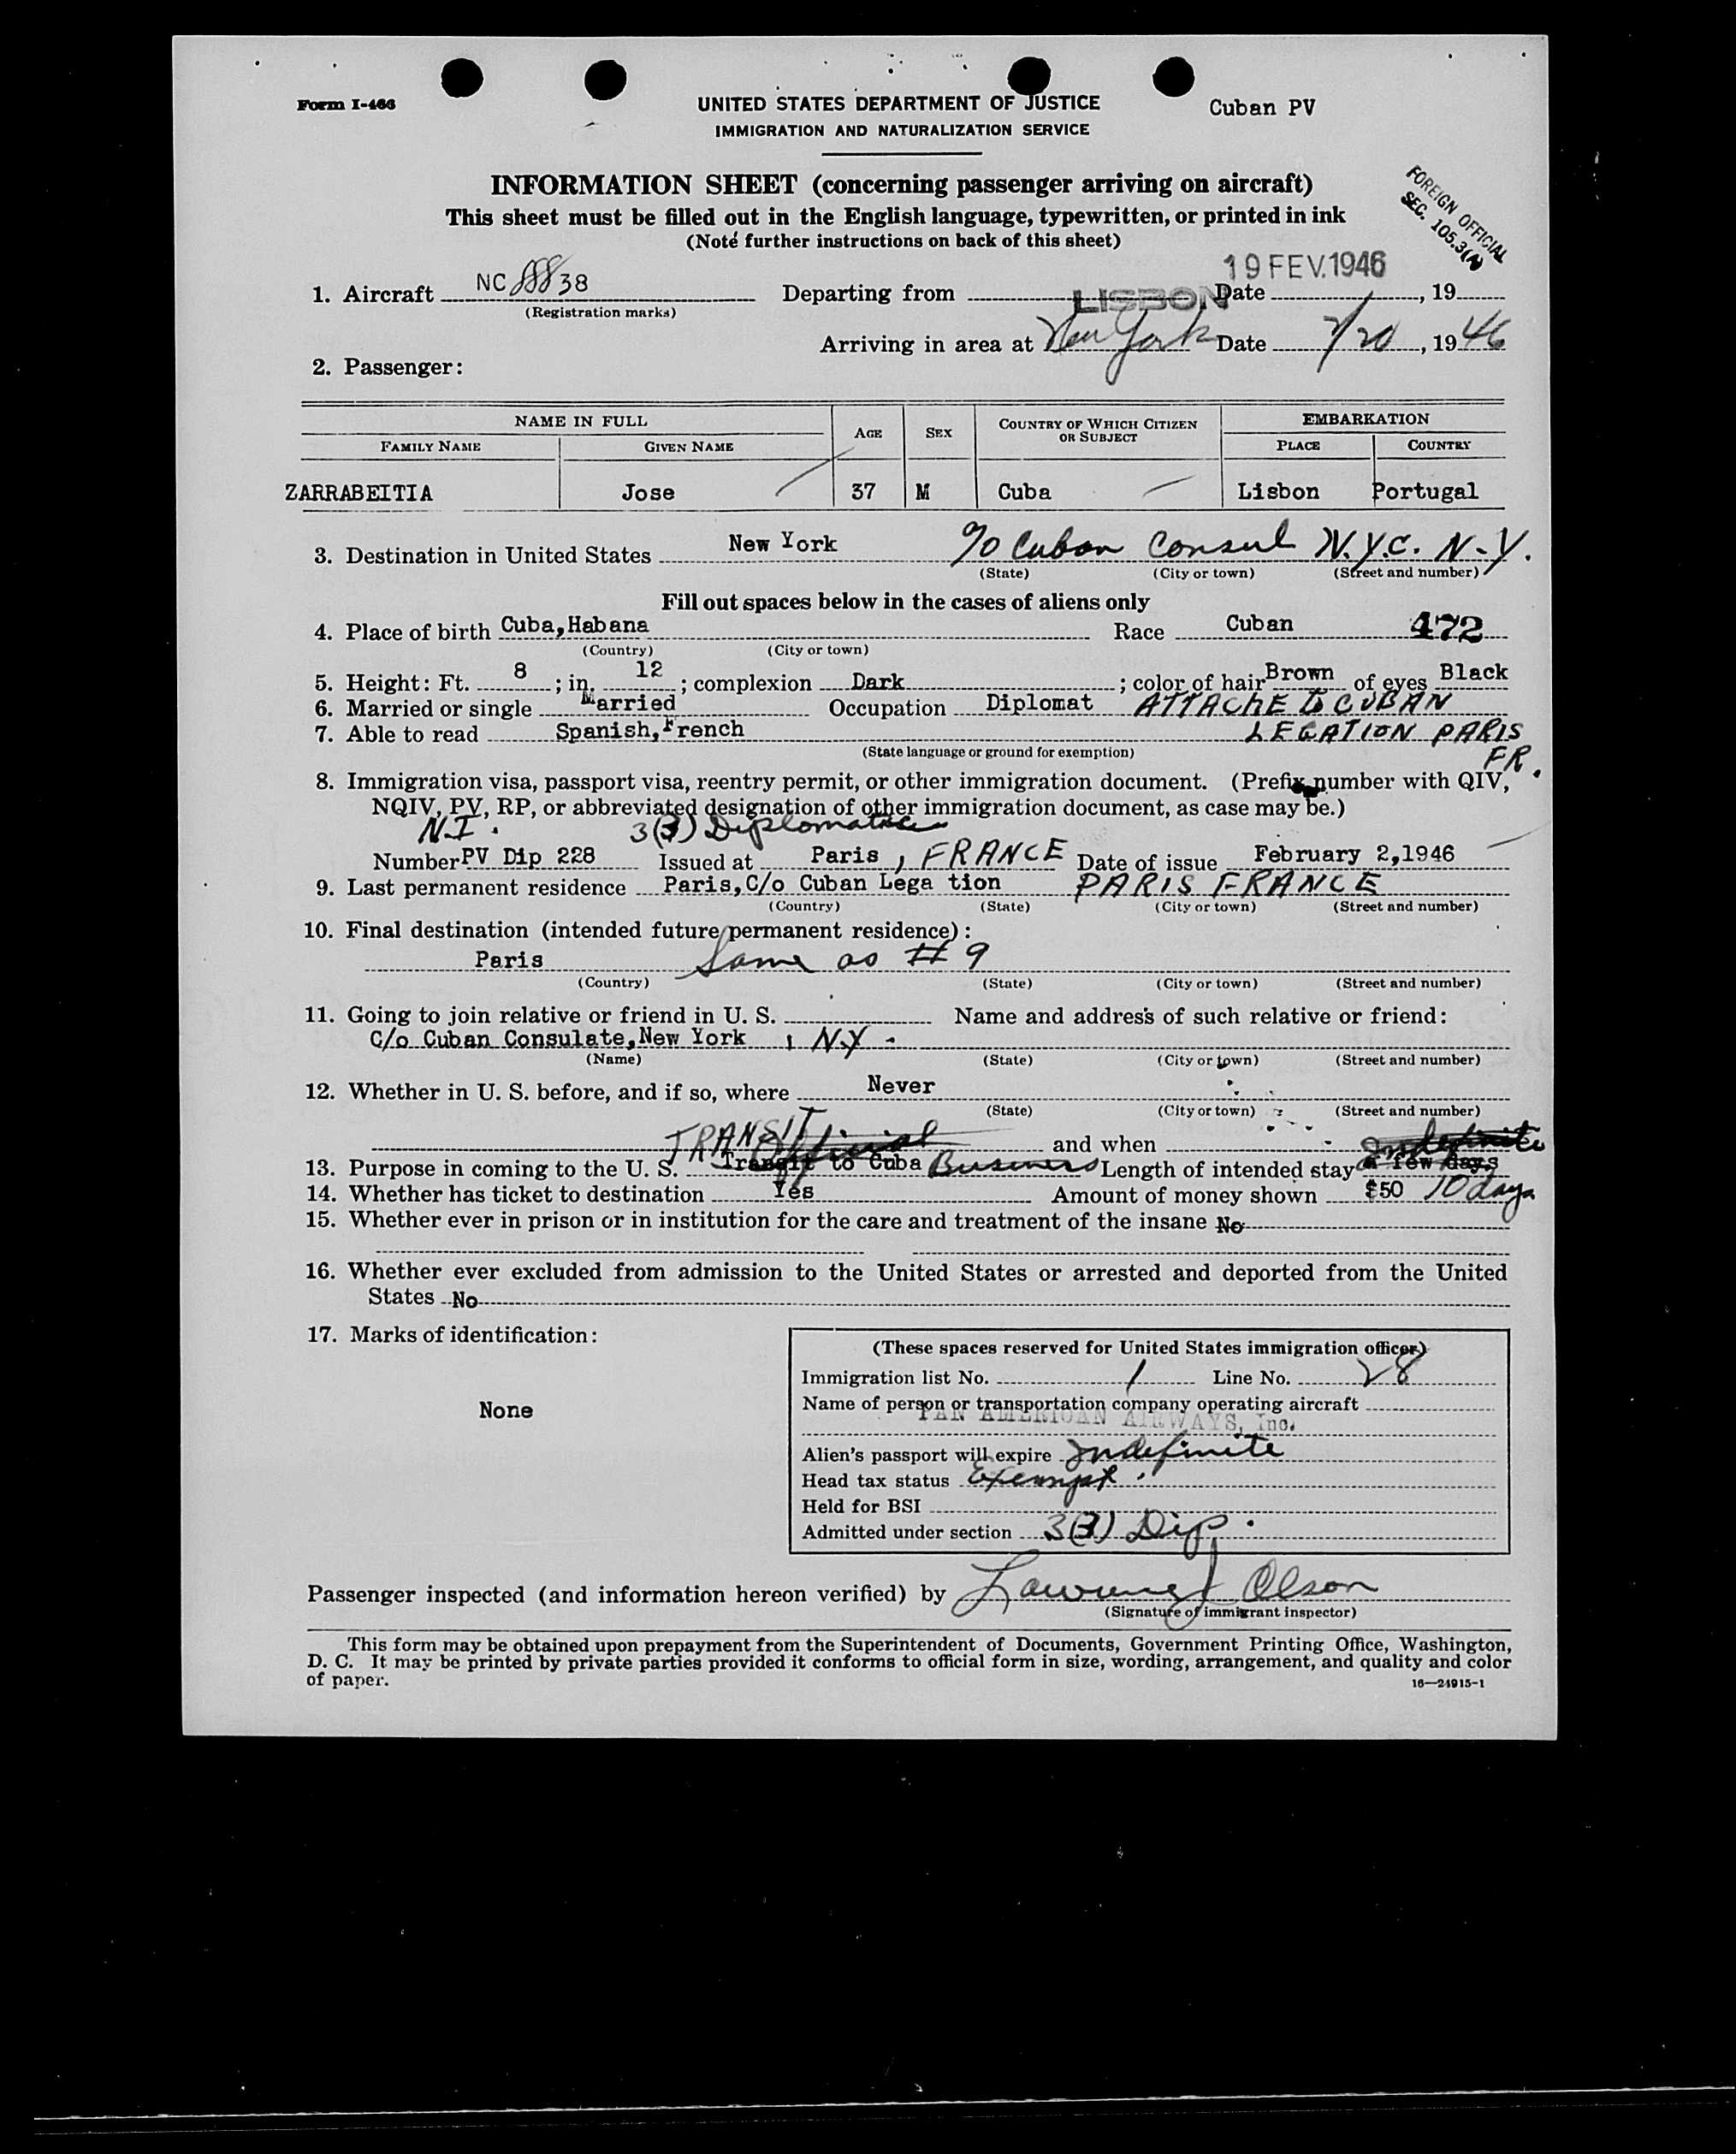 Form I-466
UNITED STATES DEPARTMENT OF JUSTICE
Cuban PV
IMMIGRATION AND NATURALIZATION SERVICE
INFORMATION SHEET (concerning passenger arriving on aircraft)
This sheet must be filled out in the English language, typewritten, or printed in ink
(Note further instructions on back of this sheet)
FOREIGN OFFICIAL
SEC. 105.3(A)
19 FEV.1946
1. Aircraft NC 88838 Departing from LISBON Date , 19
(Registration marks)
Arriving in area at New York Date 2/20, 1946
2. Passenger:
NAME IN FULL AGE SEX COUNTRY OF WHICH CITIZEN OR SUBJECT EMBARKATION
FAMILY NAME GIVEN NAME PLACE COUNTRY
ZARRABEITIA Jose 37 M Cuba Lisbon Portugal
3. Destination in United States New York c/o Cuban Consul N.Y.C. N.Y.
(State) (City or town) (Street and number)
Fill out spaces below in the cases of aliens only
4. Place of birth Cuba,Habana Race Cuban 472
(Country) (City or town)
5. Height: Ft. 8 ; in. 12 ; complexion Dark ; color of hair Brown of eyes Black
6. Married or single Married Occupation Diplomat ATTACHE to CUBAN
7. Able to read Spanish,French LEGATION PARIS
(State language or ground for exemption) FR.
8. Immigration visa, passport visa, reentry permit, or other immigration document. (Prefix number with QIV,
NQIV, PV, RP, or abbreviated designation of other immigration document, as case may be.)
N.I. 3(3) Diplomatic
Number PV Dip 228 Issued at Paris, FRANCE Date of issue February 2,1946
9. Last permanent residence Paris,C/o Cuban Lega tion PARIS FRANCE
(Country) (State) (City or town) (Street and number)
10. Final destination (intended future permanent residence):
Paris Same as # 9
(Country) (State) (City or town) (Street and number)
11. Going to join relative or friend in U. S. Name and address of such relative or friend:
C/o Cuban Consulate,New York, N.Y.
(Name) (State) (City or town) (Street and number)
12. Whether in U. S. before, and if so, where Never
(State) (City or town) (Street and number)
TRANSIT Official and when Indefinite
13. Purpose in coming to the U. S. Transit to Cuba Business Length of intended stay A few days
14. Whether has ticket to destination Yes Amount of money shown $50 10 days
15. Whether ever in prison or in institution for the care and treatment of the insane No
16. Whether ever excluded from admission to the United States or arrested and deported from the United
States No
17. Marks of identification:
None
(These spaces reserved for United States immigration officer)
Immigration list No. 1 Line No. 28
Name of person or transportation company operating aircraft
PAN AMERICAN AIRWAYS, Inc.
Alien's passport will expire Indefinite
Head tax status Exempt.
Held for BSI
Admitted under section 3(3) Dip.
Passenger inspected (and information hereon verified) by Lawrence J Olson
(Signature of immigrant inspector)
This form may be obtained upon prepayment from the Superintendent of Documents, Government Printing Office, Washington,
D. C. It may be printed by private parties provided it conforms to official form in size, wording, arrangement, and quality and color
of paper.
16—24915-1